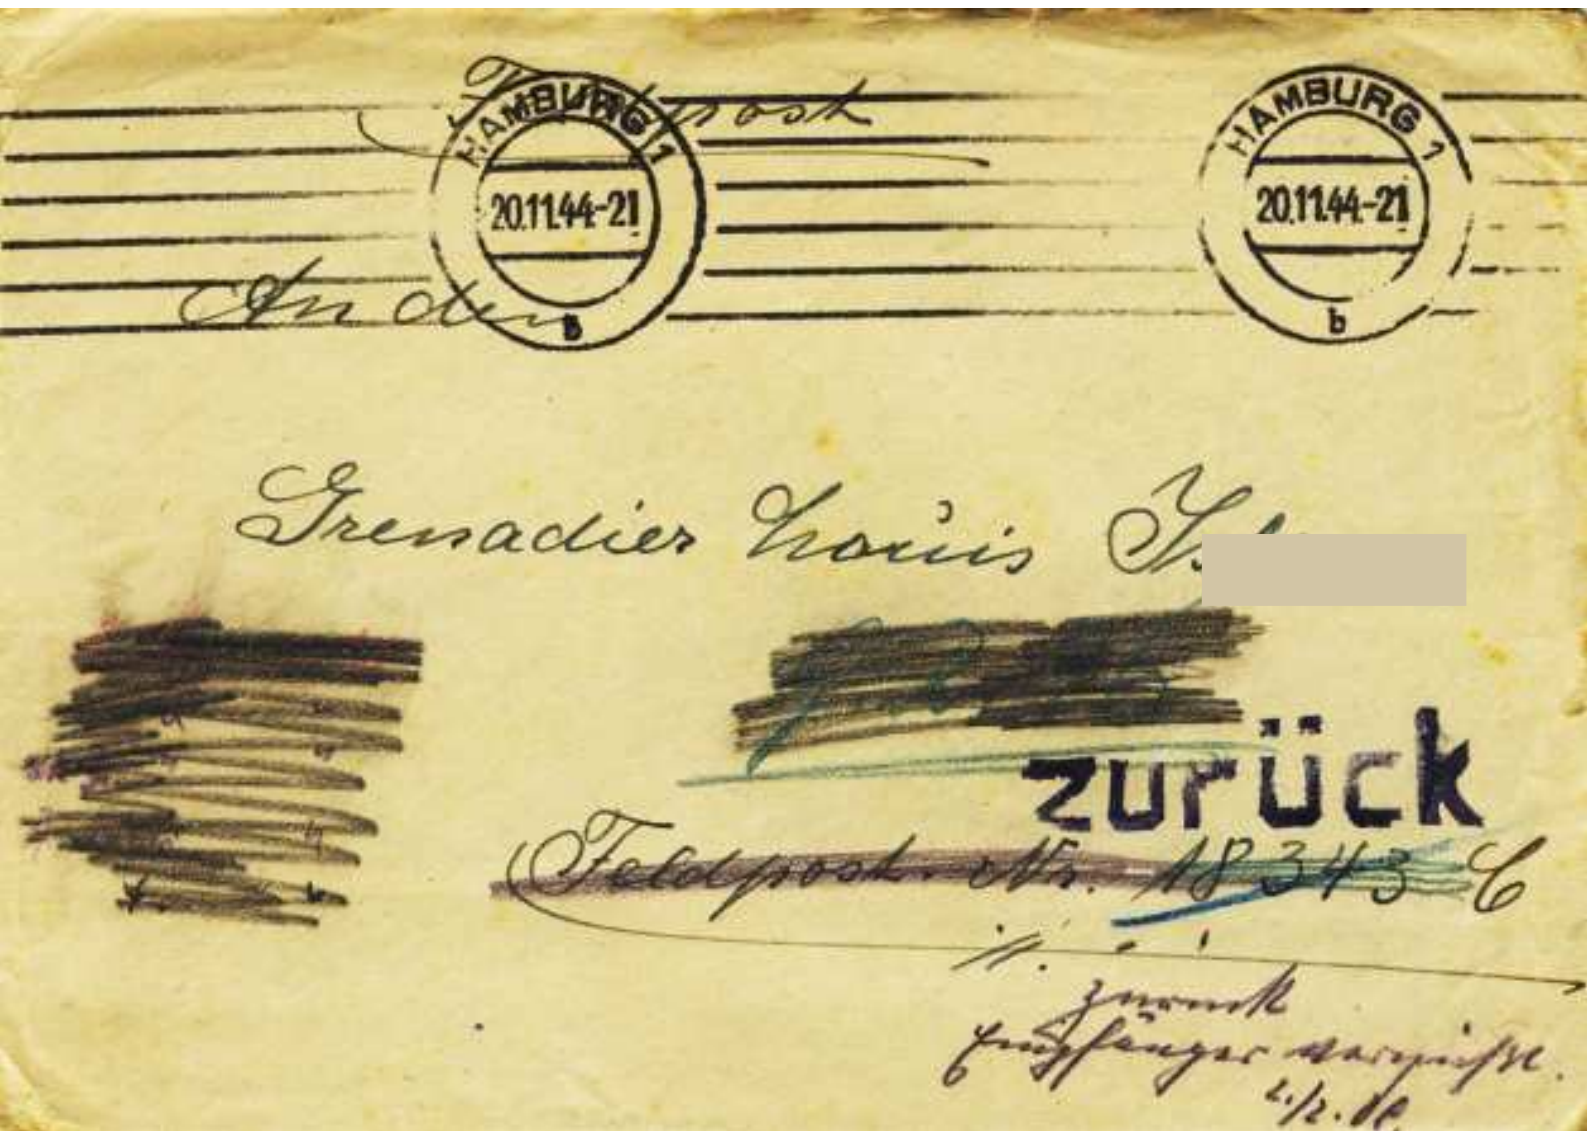 Feldpost
HAMBURG 1
20.11.44-21
b
HAMBURG 1
20.11.44-21
b
An den
Grenadier Louis
zurück
Feldpost. Nr. 18343 C
zurück
Empfänger vermißt.